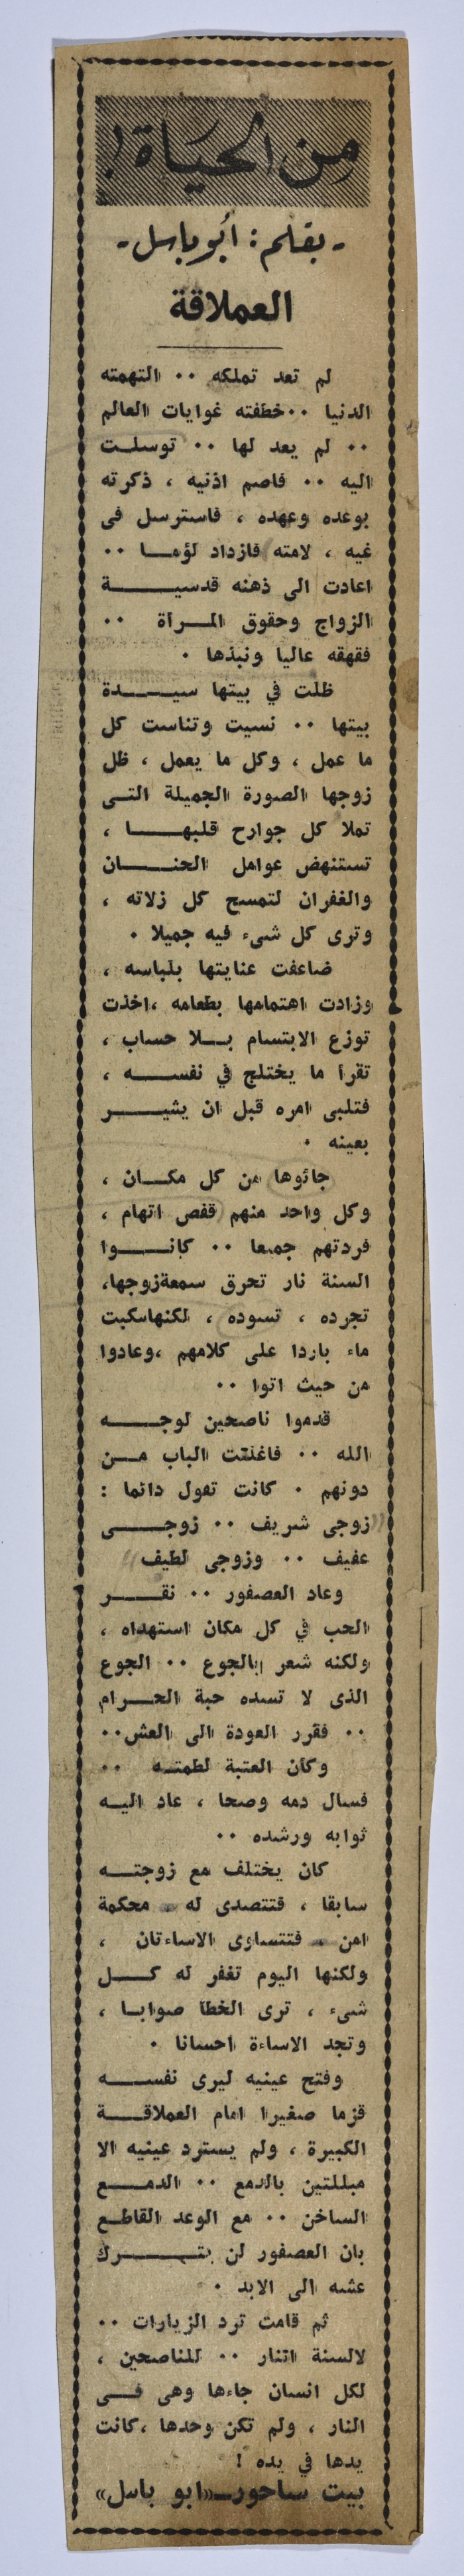 من الحياة !
- بقلم : أبو باسل -
العملاقة
لم تعد تملكه ٠٠ التهمته
الدنيا ٠٠ خطفته غوايات العالم
٠٠ لم يعد لها ٠٠ توسلت
اليه ٠٠ فاصم اذنيه ، ذكرته
بوعده وعهده ، فاسترسل فى
غيه ، لامته فازداد لؤما ٠٠
اعادت الى ذهنه قدسية
الزواج وحقوق المرأة ٠٠
فقهقه عاليا ونبذها ٠
ظلت في بيتها سيدة
بيتها ٠٠ نسيت وتناست كل
ما عمل ، وكل ما يعمل ، ظل
زوجها الصورة الجميلة التى
تملا كل جوارح قلبها ،
تستنهض عوامل الحنان
والغفران لتمسح كل زلاته ،
وترى كل شىء فيه جميلا ٠
ضاعفت عنايتها بلباسه ،
وزادت اهتمامها بطعامه ،اخذت
توزع الابتسام بلا حساب ،
تقرا ما يختلج في نفسه ،
فتلبى امره قبل ان يشير
بعينه ٠
جائوها من كل مكان ،
وكل واحد منهم قفص اتهام ،
فردتهم جميعا ٠٠ كانوا
السنة نار تحرق سمعةزوجها،
تجرده ، تسوده ، لكنهاسكبت
ماء باردا على كلامهم ،وعادوا
من حيث اتوا ٠٠
قدموا ناصحين لوجه
الله ٠٠ فاغلقت الباب من
دونهم ٠ كانت تقول دائما :
"زوجى شريف ٠٠ زوجى
عفيف ٠٠ وزوجى لطيف"
وعاد العصفور ٠٠ نقر
الحب في كل مكان استهداه ،
ولكنه شعر بالجوع ٠٠ الجوع
الذى لا تسده حبة الحرام
٠٠ فقرر العودة الى العش٠٠
وكأن العتبة لطمته ٠٠
فسال دمه وصحا ، عاد اليه
ثوابه ورشده ٠٠
كان يختلف مع زوجته
سابقا ، فتتصدى له محكمة
امن فتتساوى الاساءتان ،
ولكنها اليوم تغفر له كل
شىء ، ترى الخطا صوابا ،
وتجد الاساءة احسانا ٠
وفتح عينيه ليرى نفسه
قزما صغيرا امام العملاقة
الكبيرة ، ولم يسترد عينيه الا
مبللتين بالدمع ٠٠ الدمع
الساخن ٠٠ مع الوعد القاطع
بان العصفور لن يترك
عشه الى الابد ٠
ثم قامت ترد الزيارات ٠٠
لالسنة النار ٠٠ للناصحين ،
لكل انسان جاءها وهى فى
النار ، ولم تكن وحدها ،كانت
يدها في يده !
بيت ساحور-«ابو باسل»